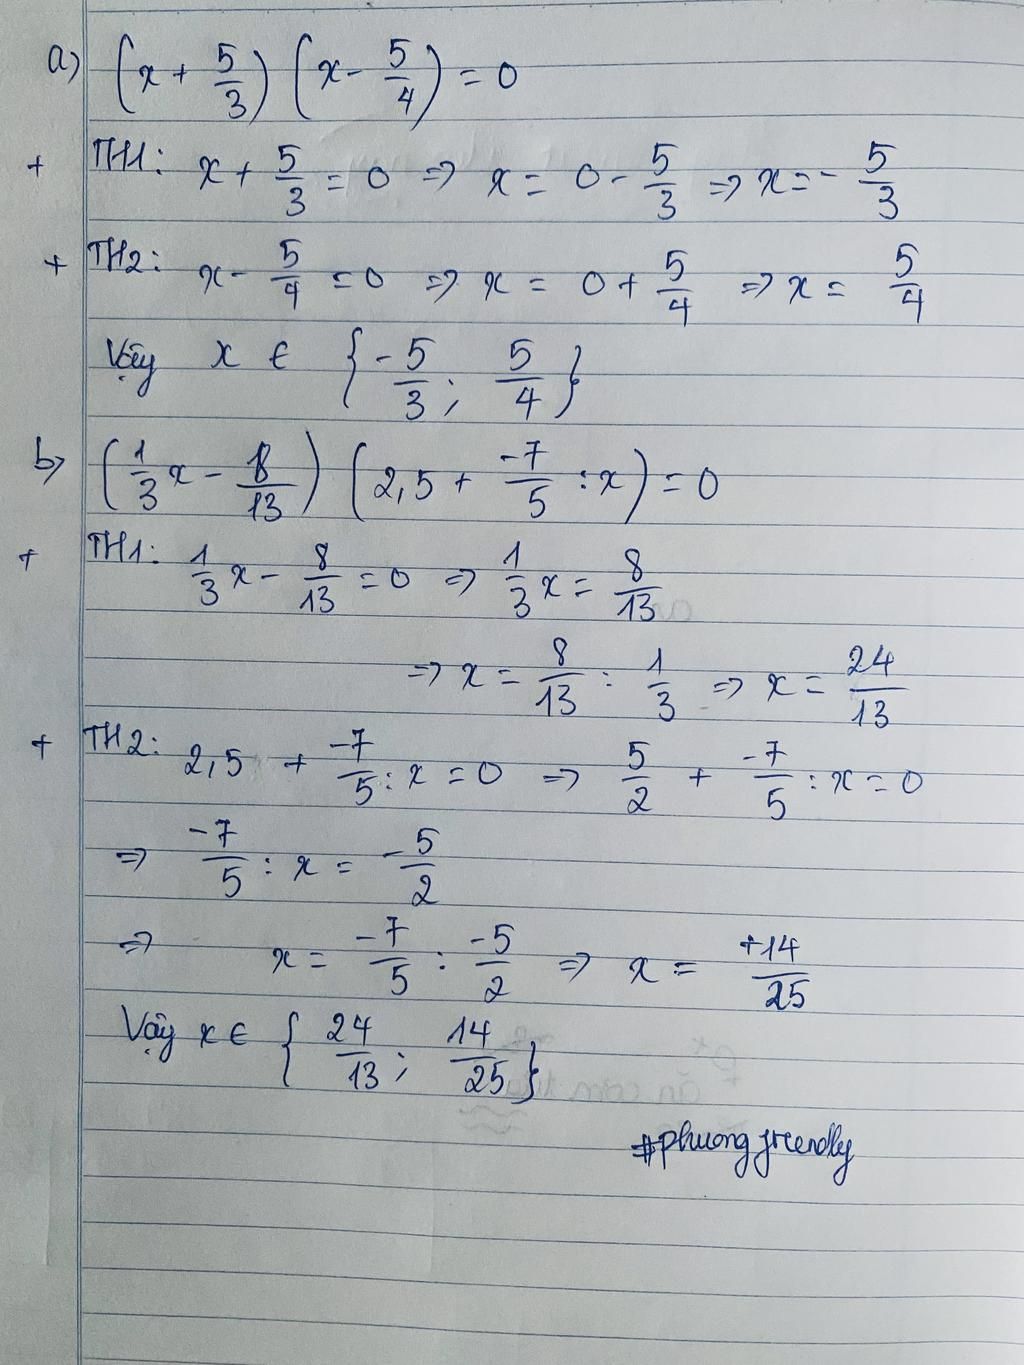 a) (x + 5/3) (x - 5/4) = 0
+ TH1: x + 5/3 = 0 => x = 0 - 5/3 => x = - 5/3
+ TH2: x - 5/4 = 0 => x = 0 + 5/4 => x = 5/4
Vậy x ∈ {-5/3; 5/4}
b) (1/3 x - 8/13) (2,5 + -7/5 : x) = 0
+ TH1: 1/3 x - 8/13 = 0 => 1/3 x = 8/13
=> x = 8/13 : 1/3 => x = 24/13
+ TH2: 2,5 + -7/5 : x = 0 => 5/2 + -7/5 : x = 0
=> -7/5 : x = -5/2
=> x = -7/5 : -5/2 => x = +14/25
Vậy x ∈ {24/13; 14/25}
#phuonggreendly